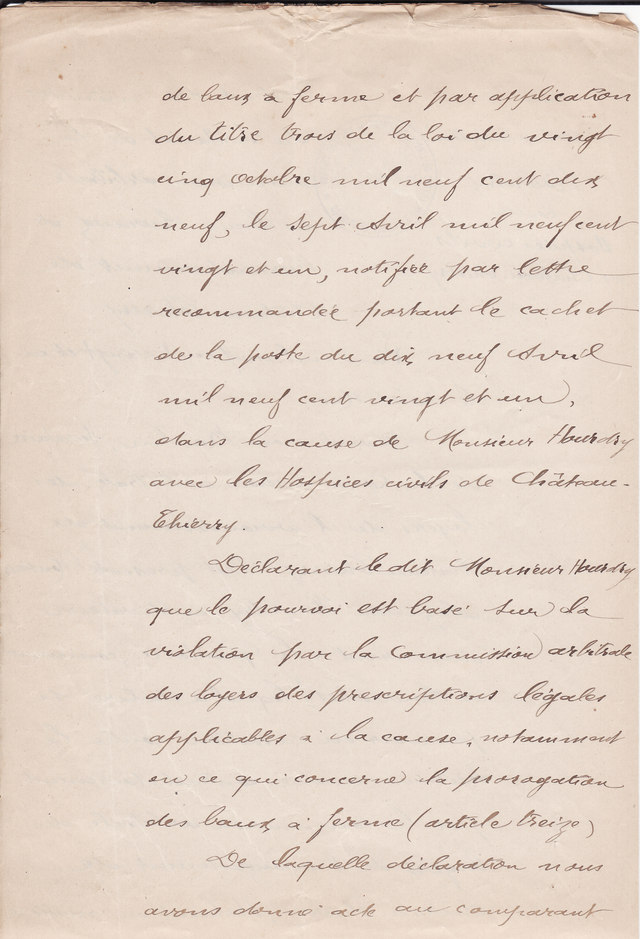 de baux à ferme et par application
du titre trois de la loi du vingt
cinq octobre mil neuf cent dix
neuf, le sept Avril mil neuf cent
vingt et un, notifiée par lettre
recommandée portant le cachet
de la poste du dix neuf Avril
mil neuf cent vingt et un,
dans la cause de Monsieur Hourdry
avec les Hospices civils de Château-
Thierry.
Déclarant le dit Monsieur Hourdry
que le pourvoi est basé sur la
violation par la Commission arbitrale
des loyers des prescriptions légales
applicables à la cause, notamment
en ce qui concerne la prorogation
des baux à ferme (article treize)
De laquelle déclaration nous
avons donné acte au comparant